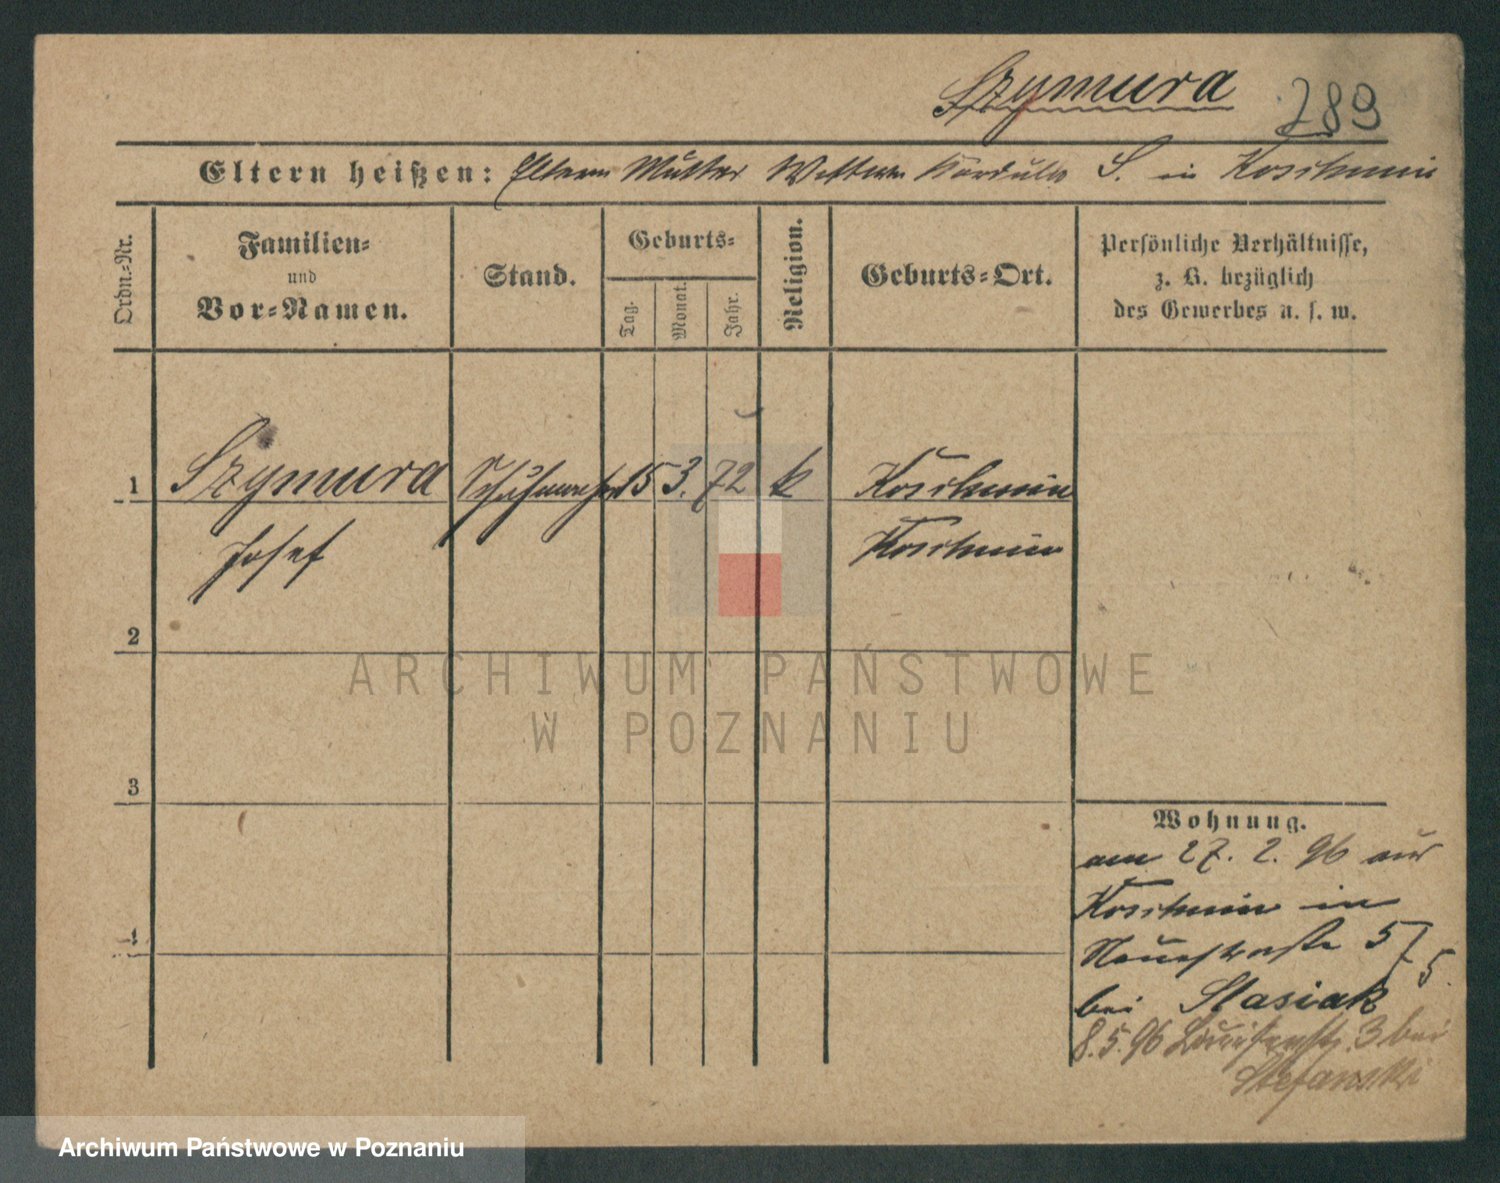 Szymura 289
Eltern heißen: Eltern Mutter Wittwe Kordula S. in Koschmin
Ordn.-Nr.
Familien-
und
Vor-Namen.
Stand.
Geburts-
Tag.
Monat.
Jahr.
Religion.
Geburts-Ort.
Persönliche Verhältnisse,
z. B. bezüglich
des Gewerbes u. s. w.
1 Szymura Schuhmacher 15 3. 72 k Koschmin
Josef Koschmin
2
ARCHIWUM PAŃSTWOWE
W POZNANIU
3
Wohnung.
am 27. 2. 96 aus
Koschmin in
Neuestraße 5/5.
4
bei Stasiak
8.5.96 Louisenstr. 3 bei
Stefanski
Archiwum Państwowe w Poznaniu